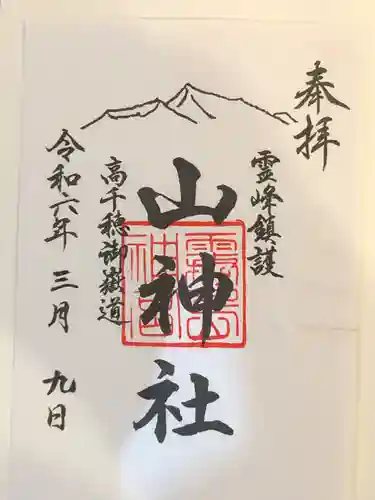 奉拝
霊峰鎮護
山神社
高千穂御嶽道
令和六年三月九日